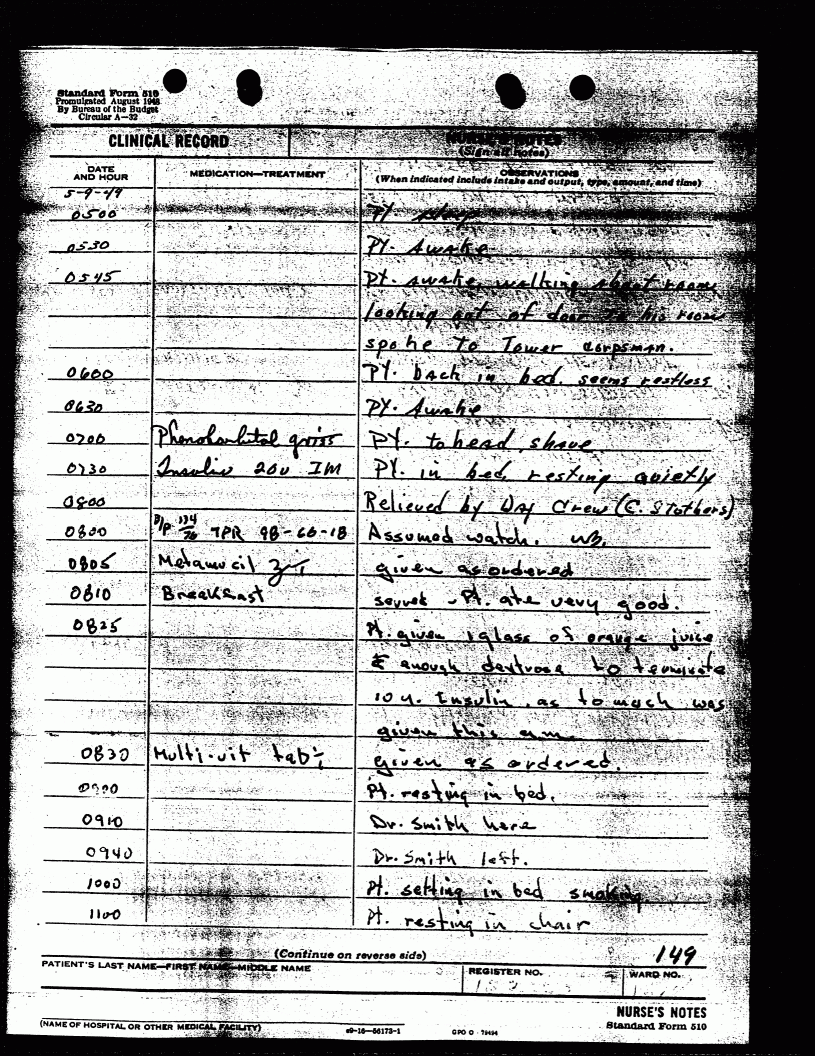 Standard Form 510
Promulgated August 1948
By Bureau of the Budget
Circular A—32
CLINICAL RECORD
NURSE'S NOTES
(Sign all notes)
DATE AND HOUR
MEDICATION—TREATMENT
OBSERVATIONS
(When indicated include intake and output, type, amount, and time)
5-9-49
0500 Pt. sleep
0530 Pt. Awake
0545 Pt. awake, walking about room
looking out of door to his room
spoke to Tower corpsman.
0600 Pt. back in bed, seems restless
0630 Pt. Awake
0700 Phenobarbital Pt. to head, shave
0730 Insulin 20u IM Pt. in bed, resting quietly
0800 Relieved by Day Crew (C. Stothers)
0800 B/P 134/76 TPR 98-60-18 Assumed watch.
0805 Metamucil given as ordered
0810 Breakfast served - Pt. ate very good.
0825 Pt. given 1 glass of orange juice
c̄ enough dextrose to terminate
10 u. Insulin, as to much was
given this a.m.
0830 Multi-vit tab given as ordered.
0900 Pt. resting in bed.
0910 Dr. Smith here
0940 Dr. Smith left.
1000 Pt. setting in bed smoking.
1100 Pt. resting in chair
(Continue on reverse side)
149
PATIENT'S LAST NAME—FIRST NAME—MIDDLE NAME
REGISTER NO.
WARD NO.
NURSE'S NOTES
Standard Form 510
(NAME OF HOSPITAL OR OTHER MEDICAL FACILITY)
s9—16—56173-1
GPO O - 79494